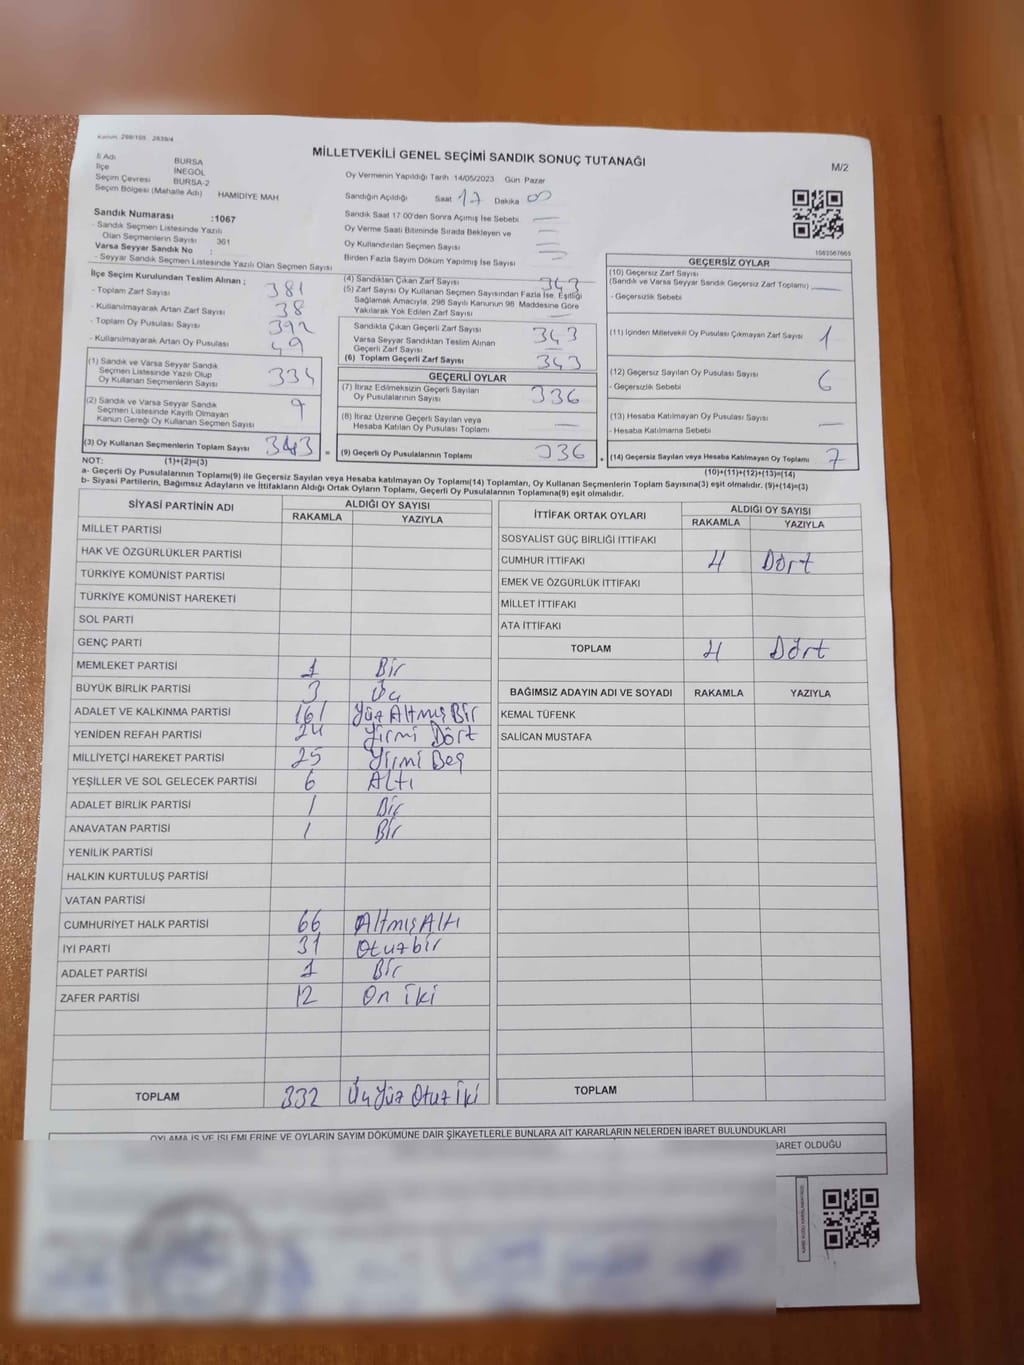 Kanun: 298/105 2839/4
MİLLETVEKİLİ GENEL SEÇİMİ SANDIK SONUÇ TUTANAĞI
M/2
İl Adı BURSA
İlçe İNEGÖL
Seçim Çevresi BURSA-2
Seçim Bölgesi (Mahalle Adı) HAMİDİYE MAH
Sandık Numarası :1067
- Sandık Seçmen Listesinde Yazılı
Olan Seçmenlerin Sayısı 361
Varsa Seyyar Sandık No :
- Seyyar Sandık Seçmen Listesinde Yazılı Olan Seçmen Sayısı
Oy Vermenin Yapıldığı Tarih 14/05/2023 Gün Pazar
Sandığın Açıldığı Saat 17 Dakika 00
Sandık Saat 17.00'den Sonra Açmış İse Sebebi —
Oy Verme Saati Bitiminde Sırada Bekleyen ve —
Oy Kullandırılan Seçmen Sayısı —
Birden Fazla Sayım Döküm Yapılmış İse Sayısı —
1583567665
İlçe Seçim Kurulundan Teslim Alınan ;
- Toplam Zarf Sayısı 381
- Kullanılmayarak Artan Zarf Sayısı 38
- Toplam Oy Pusulası Sayısı 392
- Kullanılmayarak Artan Oy Pusulası 49
(1) Sandık ve Varsa Seyyar Sandık
Seçmen Listesinde Yazılı Olup
Oy Kullanan Seçmenlerin Sayısı 334
(2) Sandık ve Varsa Seyyar Sandık
Seçmen Listesinde Kayıtlı Olmayan
Kanun Gereği Oy Kullanan Seçmen Sayısı 9
(3) Oy Kullanan Seçmenlerin Toplam Sayısı 343 =
(4) Sandıktan Çıkan Zarf Sayısı 343
(5) Zarf Sayısı Oy Kullanan Seçmen Sayısından Fazla İse, Eşitliği
Sağlamak Amacıyla, 298 Sayılı Kanunun 98 Maddesine Göre
Yakılarak Yok Edilen Zarf Sayısı —
Sandıkta Çıkan Geçerli Zarf Sayısı 343
Varsa Seyyar Sandıktan Teslim Alınan
Geçerli Zarf Sayısı —
(6) Toplam Geçerli Zarf Sayısı 343
GEÇERLİ OYLAR
(7) İtiraz Edilmeksizin Geçerli Sayılan
Oy Pusulalarının Sayısı 336
(8) İtiraz Üzerine Geçerli Sayılan veya
Hesaba Katılan Oy Pusulası Toplamı —
(9) Geçerli Oy Pusulalarının Toplamı 336 +
GEÇERSİZ OYLAR
(10) Geçersiz Zarf Sayısı
(Sandık ve Varsa Seyyar Sandık Geçersiz Zarf Toplamı) —
- Geçersizlik Sebebi
(11) İçinden Milletvekili Oy Pusulası Çıkmayan Zarf Sayısı 1
(12) Geçersiz Sayılan Oy Pusulası Sayısı 6
- Geçersizlik Sebebi
(13) Hesaba Katılmayan Oy Pusulası Sayısı —
- Hesaba Katılmama Sebebi
(14) Geçersiz Sayılan veya Hesaba Katılmayan Oy Toplamı 7
NOT: (1)+(2)=(3) (10)+(11)+(12)+(13)=(14)
a- Geçerli Oy Pusulalarının Toplamı(9) ile Geçersiz Sayılan veya Hesaba katılmayan Oy Toplamı(14) Toplamları, Oy Kullanan Seçmenlerin Toplam Sayısına(3) eşit olmalıdır. (9)+(14)=(3)
b- Siyasi Partilerin, Bağımsız Adayların ve İttifakların Aldığı Oyların Toplamı, Geçerli Oy Pusulalarının Toplamına(9) eşit olmalıdır.
SİYASİ PARTİNİN ADI ALDIĞI OY SAYISI
RAKAMLA YAZIYLA
MİLLET PARTİSİ
HAK VE ÖZGÜRLÜKLER PARTİSİ
TÜRKİYE KOMÜNİST PARTİSİ
TÜRKİYE KOMÜNİST HAREKETİ
SOL PARTİ
GENÇ PARTİ
MEMLEKET PARTİSİ 1 Bir
BÜYÜK BİRLİK PARTİSİ 3 Üç
ADALET VE KALKINMA PARTİSİ 161 Yüz Altmış Bir
YENİDEN REFAH PARTİSİ 24 Yirmi Dört
MİLLİYETÇİ HAREKET PARTİSİ 25 Yirmi Beş
YEŞİLLER VE SOL GELECEK PARTİSİ 6 Altı
ADALET BİRLİK PARTİSİ 1 Bir
ANAVATAN PARTİSİ 1 Bir
YENİLİK PARTİSİ
HALKIN KURTULUŞ PARTİSİ
VATAN PARTİSİ
CUMHURİYET HALK PARTİSİ 66 Altmış Altı
İYİ PARTİ 31 Otuz bir
ADALET PARTİSİ 1 Bir
ZAFER PARTİSİ 12 On iki
TOPLAM 332 Üç Yüz Otuz İki
İTTİFAK ORTAK OYLARI ALDIĞI OY SAYISI
RAKAMLA YAZIYLA
SOSYALİST GÜÇ BİRLİĞİ İTTİFAKI
CUMHUR İTTİFAKI 4 Dört
EMEK VE ÖZGÜRLÜK İTTİFAKI
MİLLET İTTİFAKI
ATA İTTİFAKI
TOPLAM 4 Dört
BAĞIMSIZ ADAYIN ADI VE SOYADI RAKAMLA YAZIYLA
KEMAL TÜFENK
SALİCAN MUSTAFA
TOPLAM
OYLAMA İŞ VE İŞLEMLERİNE VE OYLARIN SAYIM DÖKÜMÜNE DAİR ŞİKAYETLERLE BUNLARA AİT KARARLARIN NELERDEN İBARET BULUNDUKLARI
BARET OLDUĞU